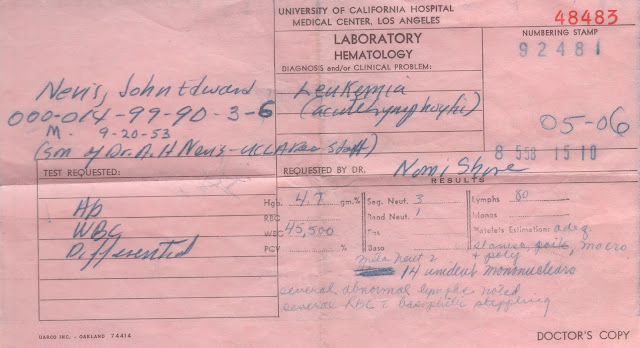 UNIVERSITY OF CALIFORNIA HOSPITAL
MEDICAL CENTER, LOS ANGELES
48483
LABORATORY
HEMATOLOGY
NUMBERING STAMP
92481
DIAGNOSIS and/or CLINICAL PROBLEM:
Leukemia
(acute lymphocytic)
John Edward
000-014-99-90-3-6
M. 9-20-53
05-06
8 558 15 10
TEST REQUESTED:
REQUESTED BY DR.
RESULTS
Hb
WBC
Differential
Hgb. 4.7 gm.%
RBC
WBC 45,500
PCV %
Seg. Neut. 3
Band Neut. 1
Eos.
Baso
Lymphs 80
Monos
Platelets Estimation: adeq.
macro
+ poly
14 unident mononuclears
several abnormal lymphs noted
several RBC basophilic stippling
UARCO INC. - OAKLAND 74414
DOCTOR'S COPY